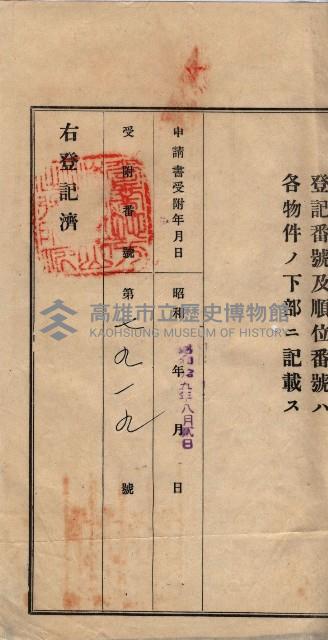 登記番號及順位番號ハ
各物件ノ下部ニ記載ス
申請書受附年月日 昭和 年 月 日
昭和 九年八月貳日
受附番號 第 九一九 號
右登記濟
高雄市立歷史博物館
KAOHSIUNG MUSEUM OF HISTORY